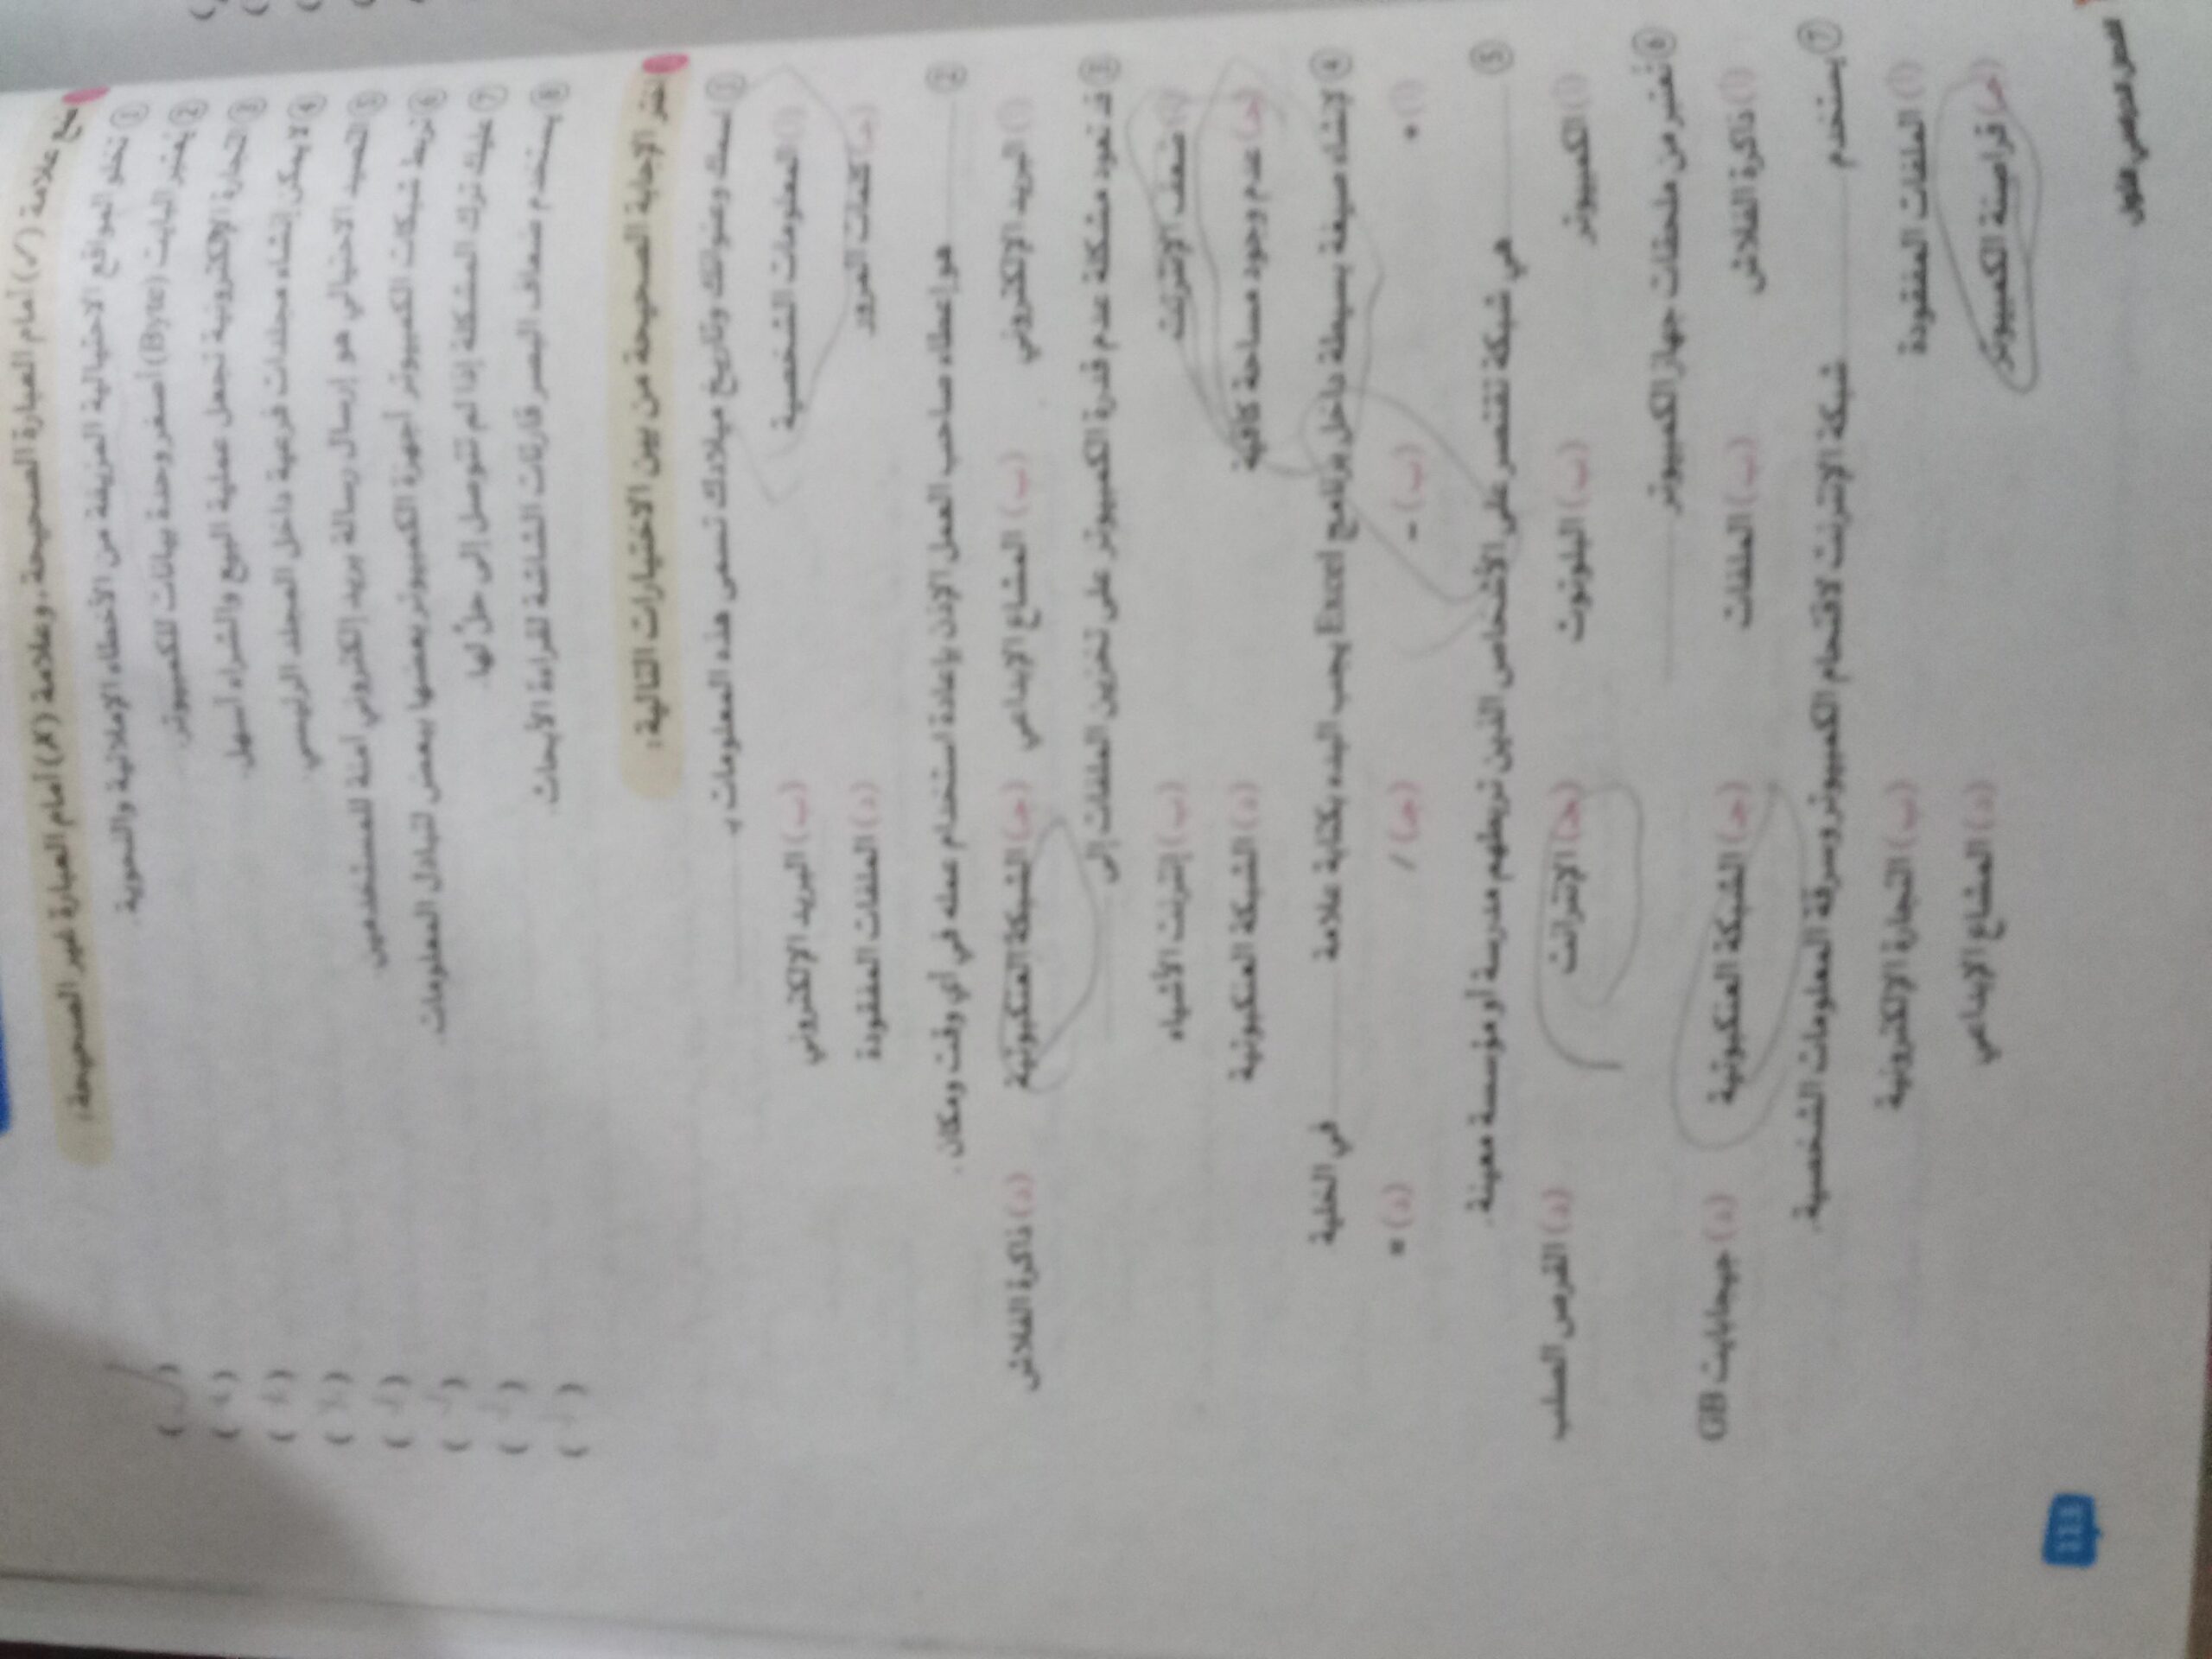 ضع علامة (✓) أمام العبارة الصحيحة، وعلامة (✗) أمام العبارة غير الصحيحة:
① تخلو المواقع الاحتيالية المزيفة من الأخطاء الإملائية والنحوية.
② يعتبر البايت (Byte) أصغر وحدة بيانات للكمبيوتر.
③ التجارة الإلكترونية تجعل عملية البيع والشراء أسهل.
④ لا يمكن إنشاء مجلدات فرعية داخل المجلد الرئيسي.
⑤ الصيد الاحتيالي هو إرسال رسالة بريد إلكتروني آمنة للمستخدمين.
⑥ تربط شبكات الكمبيوتر أجهزة الكمبيوتر بعضها ببعض لتبادل المعلومات.
⑦ عليك ترك المشكلة إذا لم تتوصل إلى حل لها.
⑧ يستخدم ضعاف البصر قارئات الشاشة لقراءة الأبحاث.
اختر الإجابة الصحيحة من بين الاختيارات التالية:
① اسمك وعنوانك وتاريخ ميلادك تسمى هذه المعلومات بـ
(أ) المعلومات الشخصية (ب) البريد الإلكتروني
(جـ) كلمات المرور (د) الملفات المفقودة
② هو إعطاء صاحب العمل الإذن بإعادة استخدام عمله في أي وقت ومكان.
(أ) البريد الإلكتروني (ب) المشاع الإبداعي (جـ) الشبكة العنكبوتية (د) ذاكرة الفلاش
③ قد تعود مشكلة عدم قدرة الكمبيوتر على تخزين الملفات إلى
(أ) ضعف الإنترنت (ب) إنترنت الأشياء
(جـ) عدم وجود مساحة كافية (د) الشبكة العنكبوتية
④ لإنشاء صيغة بسيطة داخل برنامج Excel يجب البدء بكتابة علامة في الخلية
(أ) (ب) - (جـ) / (د) =
⑤ هي شبكة تقتصر على الأشخاص الذين تربطهم مدرسة أو مؤسسة معينة.
(أ) الكمبيوتر (ب) البلوتوث (جـ) الإنترانت (د) القرص الصلب
⑥ تعتبر من ملحقات جهاز الكمبيوتر
(أ) ذاكرة الفلاش (ب) الملفات (جـ) الشبكة العنكبوتية (د) جيجابايت GB
⑦ يستخدم شبكة الإنترنت لاقتحام الكمبيوتر وسرقة المعلومات الشخصية.
(أ) الملفات المفقودة (ب) التجارة الإلكترونية
(جـ) قراصنة الكمبيوتر (د) المشاع الإبداعي